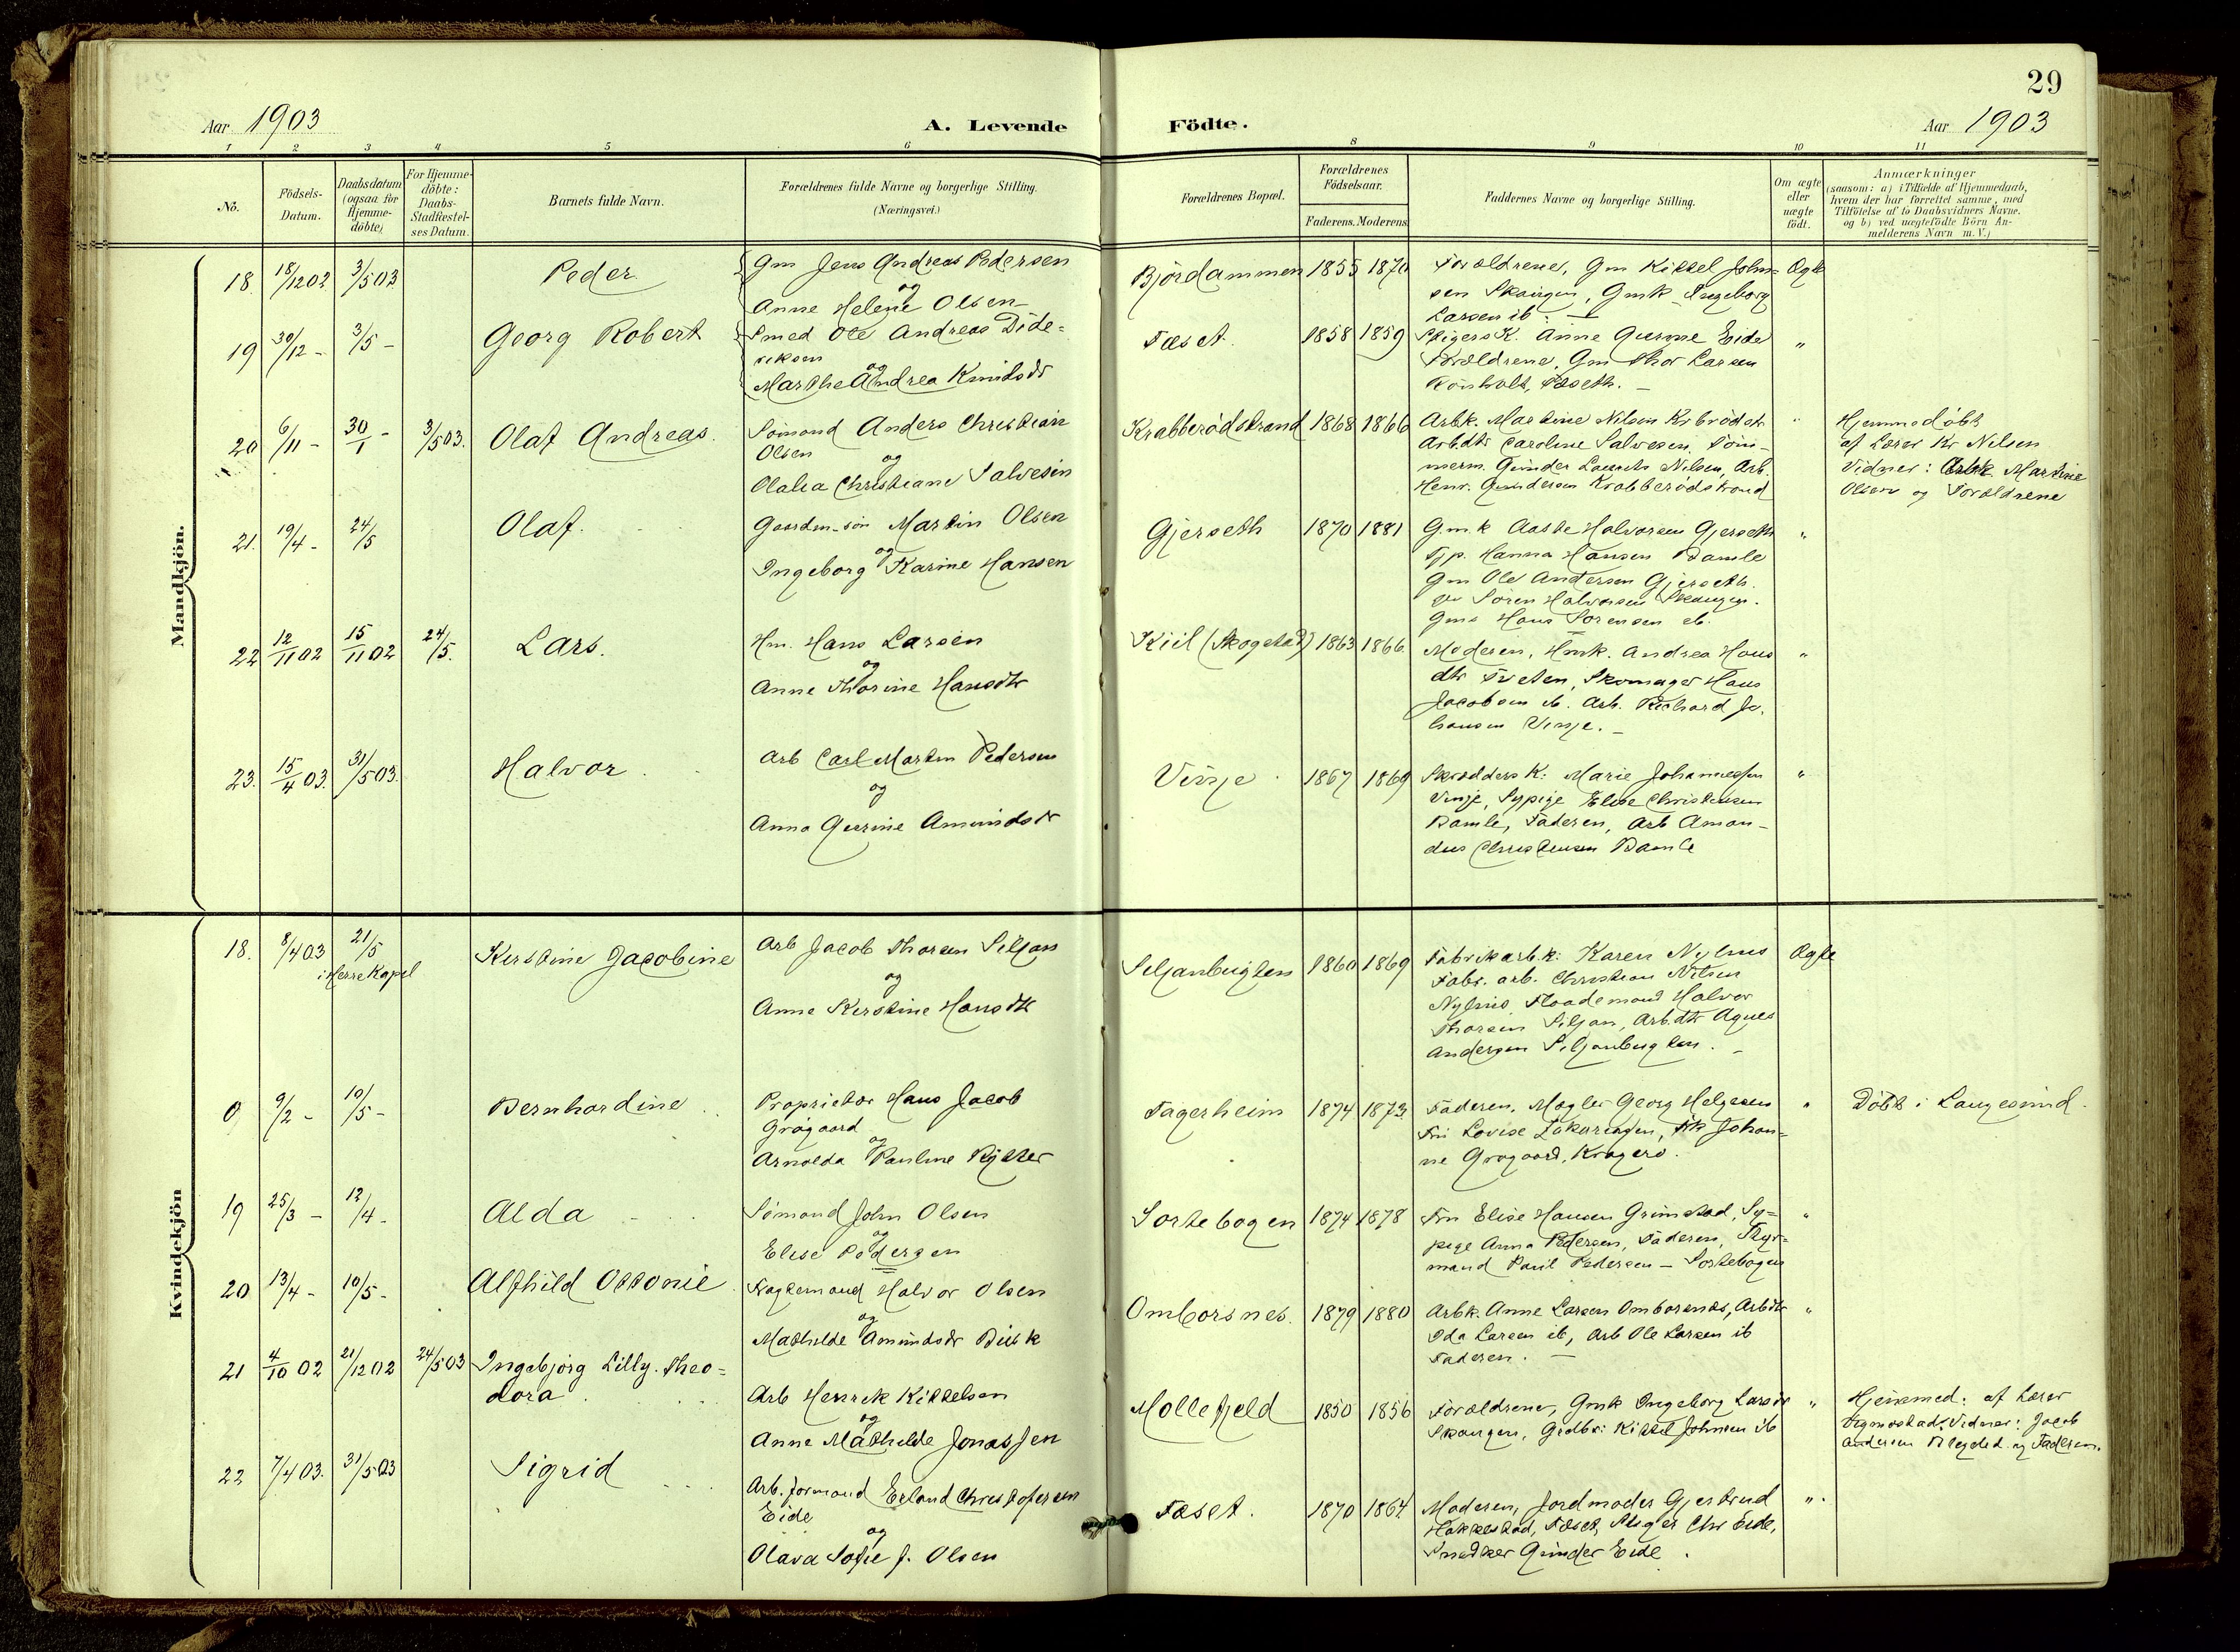 29
Aar 1903
A. Levende Födte.
Aar 1903
1 2 3 4 5 6 8 9 10 11
No.
Födsels-
Datum.
Daabsdatum
(ogsaa for
Hjemme-
döbte)
For Hjemme-
döbte:
Daabs-
Stadfæstel-
ses Datum.
Barnets fulde Navn.
Forældrenes fulde Navne og borgerlige Stilling.
(Næringsvei.)
Forældrenes Bopæl.
Forældrenes
Födselsaar.
Faderens. Moderens.
Faddernes Navne og borgerlige Stilling.
Om ægte
eller
uægte
födt.
Anmærkninger
(saasom: a) i Tilfælde af Hjemmedaab,
hvem der har forrettet samme, med
Tilföielse af to Daabsvidners Navne,
og b) ved uægtefödte Börn An-
melderens Navn m. V.)
Mandkjön.
18. 18/12 02 3/5 03 Peder
Gm Jens Andreas Pedersen
og
Anne Helene Olsen
Bjørdammen 1855 1870
Forældrene, Gm Kittel John-
sen Skougen, Gmk Ingeborg
Larsen ib.
Ægte
19 30/12 - 3/5 - Georg Robert
Smed Ole Andreas Dide-
riksen
og
Marthe Andrea Knudsdr
Fæset. 1858 1859
Stigers K. Anne Gurine Eide
Forældrene, Gm Thor Larsen
Rønholt, Fæseth. -
"
20 6/11 - 30/1 - 3/5 03. Olaf Andreas.
Sømand Anders Christian
Olsen
og
Olalea Christiane Salvesen
Krabberødstrand 1868 1866
Arbk. Martine Nilsen Krbrødstr
Arbdtr Caroline Salvesen, Tøm-
merm. Gunder Laurits Nilsen, Arb.
Henr. Gundersen Krabberødstrand
"
Hjemmedøbt
af Lærer Kr Nilsen
Vidner: Arbk. Martine
Olsen og Forældrene
21. 19/4 - 24/5 Olaf.
Gaardm.søn Martin Olsen
og
Ingeborg Karine Hansen
Gjerseth 1870 1881
Gmk Aaste Halvorsen Gjerseth
Tjp. Hanna Hansen Bamle
Gm Ole Andersen Gjerseth.
Søren Halvorsen Skougen.
Gms Hans Sørensen ib.
"
22 12/11 02 15/11 02 24/5. Lars.
Hm. Hans Larsen
og
Anne Thorine Hansdtr
Kiil (Skogstad) 1863 1866.
Moderen, Hmk. Andrea Hans
dtr Tveten, Skomager Hans
Jacobsen ib. Arb. Richard Jo-
hansen Vinje. -
"
23. 15/4 03. 31/5 03. Halvor
Arb Carl Martin Pedersen
og
Anna Gurine Amundsdr
Vinje. 1867 1869
Skrædders K: Marie Johannessen
Vinje, Sypige Elise Christensen
Bamle, Faderen, Arb Aman-
dus Christensen Bamle
"
Kvindekjön
18. 8/4 03 21/5
i Herre Kapel
Kirstine Jacobine
Arb Jacob Thorsen Siljan
og
Anne Kirstine Hansdtr
Siljanbugten 1860 1869
Fabrikarb.k: Karen Nyhus
Fabr. arb. Christian Nilsen
Nyhus, Flaademand Halvor
Thorsen Siljan, Arb.dtr Agnes
Andersen Siljanbugten. -
Ægte
0 9/2 - 10/5 - Bernhardine
Proprietær Hans Jacob
Grøgaard
og
Arnolda Pauline Rytter
Fagerheim 1874 1873
Faderen, Mægler Georg Helgesen
Fru Lovise Zakariasen, Frk Johan-
ne Grøgaard, Kragerø.
"
Døbt i Langesund.
19 25/3 - 12/4 - Alda
Sømand John Olsen
og
Elise Pedersen
Sortebogen 1874 1878
Fru Elise Hansen Grimstad, Sy-
pige Anna Pedersen, Faderen, Styr-
mand Poul Pedersen - Sortebogen
"
20 13/4 - 10/5 - Alfhild Ottonie
Fragtemand Halvor Olsen
og
Mathilde Amundsdr Busk
Omborsnes. 1879 1880
Arbk. Anne Larsen Omborsnæs, Arbdtr
Ida Larsen ib, Arb Ole Larsen ib
Faderen. -
"
21 4/10 02 21/12 02 24/5 03 Ingebjørg Lilly Theo-
dora
Arb Henrik Kittelsen
og
Anne Mathilde Jonassen
Mollefjeld 1850 1856
Forældrene, Gmk Ingeborg Larsdr
Skougen, Grdbr: Kittel Johnsen ib
"
Hjemmed: af Lærer
Vidner: Jacob
Andersen og Faderen.
22 7/4 03. 31/5 03 Sigrid
Arb. Formand Erland Christofersen
Eide
og
Olava Sofie J. Olsen
Fæset. 1870 1864
Moderen, Jordmoder Gjertrud
Hakkestad, Fæset, Stiger Chr Eide,
Snedker Gunder Eide.
"